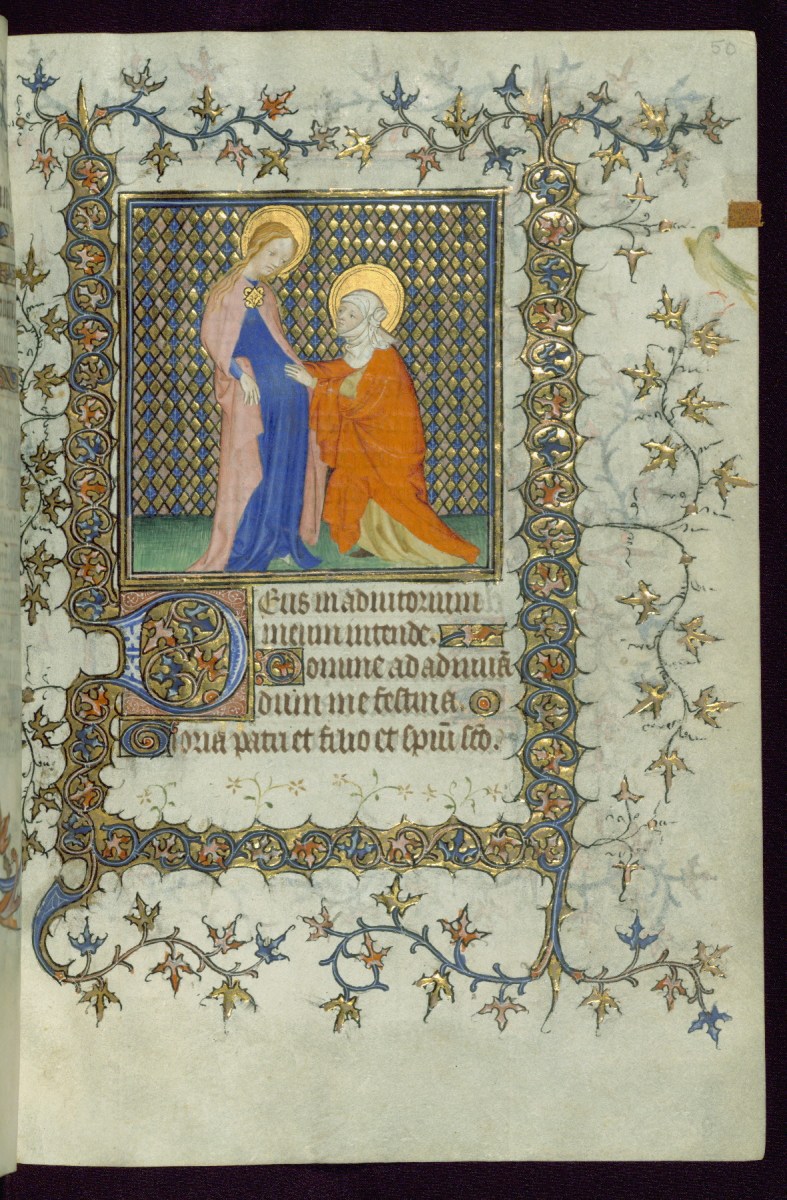 50
Deus in adiutorium
meum intende.
Domine ad adiuuā
dum me festina.
Gloria patri et filio et spūi sc̄o.